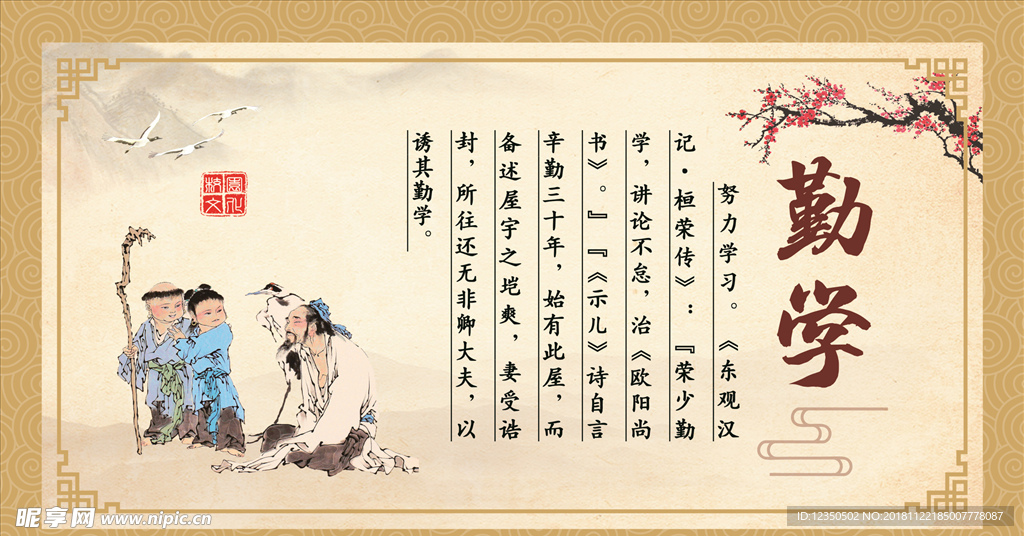 勤学
努力学习。《东观汉
记·桓荣传》:『荣少勤
学,讲论不怠,治《欧阳尚
书》。』『《示儿》诗自言
辛勤三十年,始有此屋,而
备述屋宇之垲爽,妻受诰
封,所往还无非卿大夫,以
诱其勤学。
校园
文化
昵享网 www.nipic.cn
ID:12350502 NO:20181122185007778087